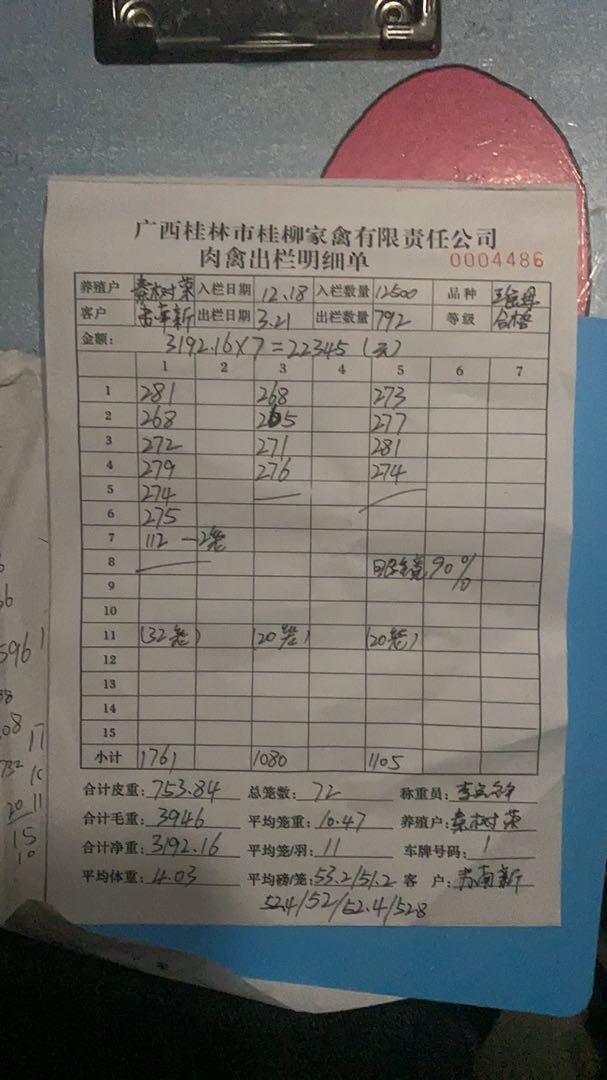 广西桂林市桂柳家禽有限责任公司
肉禽出栏明细单 0004486
养殖户 秦树荣 入栏日期 12.18 入栏数量 12500 品种
客户 出栏日期 3.21 出栏数量 792 等级 合格
金额: 3192.16×7=22345(元)
1 2 3 4 5 6 7
1 281 268 273
2 268 265 277
3 272 271 281
4 279 276 274
5 274
6 275
7 112 - 2笼
8 90%
9
10
11 (32笼) (20笼) (20笼)
12
13
14
15
小计 1761 1080 1105
合计皮重: 753.84 总笼数: 72 称重员:
合计毛重: 3946 平均笼重: 10.47 养殖户: 秦树荣
合计净重: 3192.16 平均笼/羽: 11 车牌号码: 1
平均体重: 4.03 平均磅/笼: 53.2/51.2 客户:
52.4/52/52.4/52.8
596
15
10